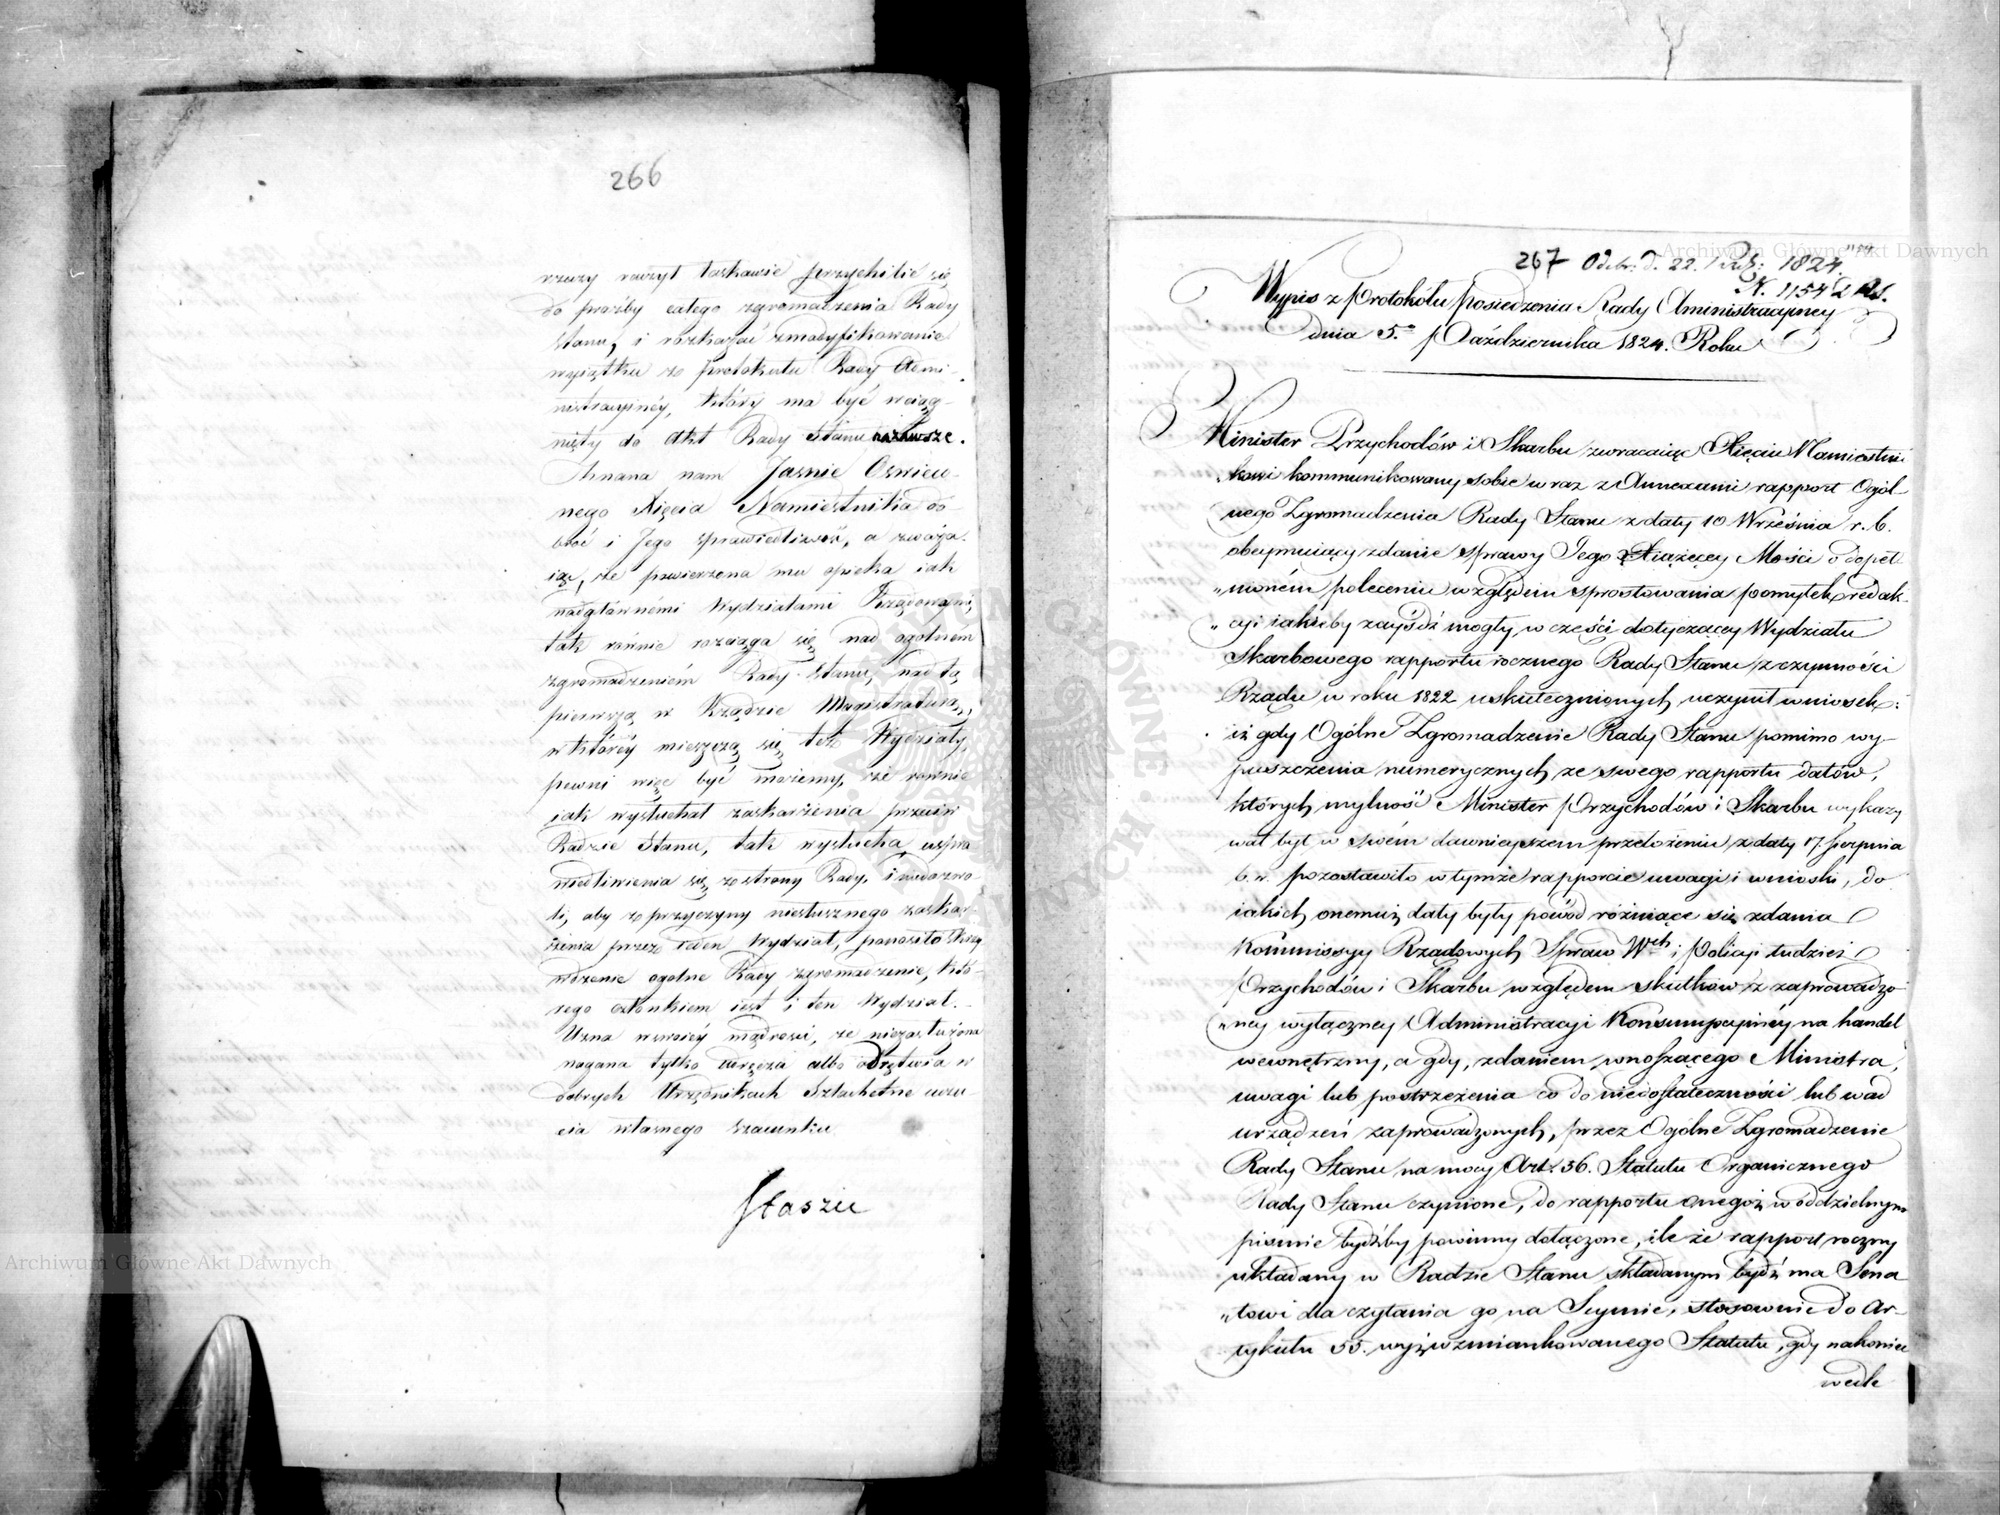 266
rzuzy raczył łaskawie przychilić się
do prożby całego zgromadzenia Rady
Stanu, i rozkazać zmodyfikowanie
wyiątku ze protokułu Rady Admi-
nistracyinéy, który ma być wciąg-
nięty do Akt Rady Stanu nazawsze.
Znana nam Jasnie Oswieco-
nego Xięcia Namiestnika do-
broć i Jego sprawiedliwość, a zważa-
iąc, że powierzona mu opieka iak
nad głównémi Wydziałami Rządowymi,
tak równie rozciąga się nad ogolném
zgromadzeniém Rady Stanu, nad tą
pierwszą w Rządzie Magistraturą,
w któréy mieszczą się też Wydziały,
pewni więc być możemy, że równie
iak wysłuchał zaskarżenia przeciw
Radzie Stanu, tak wysłucha uspra
wiedliwienia się ze strony Rady, i niedozwo-
li, aby z przyczyny niesłusznego zaskar-
żenia przez ieden Wydział, ponosiło skrzy
wdzenie ogolne Rady zgromadzenie, któ-
rego członkiem iest i ten Wydział.
Uzna w swoiéy mądrości, że niezasłużona
nagana tylko albo odrętwia w
dobrych Urzędnikach Szlachetne uczu-
cia własnego szacunku.
Staszic
267 Odebr. d. 22. Paźd: 1824.
N. 1154 2 R.S.
Wypis z Protokółu posiedzenia Rady Administracyjney
dnia 5.º Października 1824. Roku
Minister Przychodów i Skarbu zwracaiąc Xięciu Namiestni
„kowi kommunikowany sobie wraz z Annexami rapport Ogól-
nego Zgromadzenia Rady Stanu z daty 10 Września r. b.
obeymuiący zdanie sprawy Jego Xiążęcey Mości o dopeł
„nioném poleceniu względem sprostowania pomyłek redak-
„cyi iakieby zayśdź mogły w części dotyczącey Wydziału
Skarbowego rapportu rocznego Rady Stanu z czynności
Rządu w roku 1822 uskutecznionych, uczynił wniosek:
iż gdy Ogólne Zgromadzenie Rady Stanu pomimo wy-
puszczenia numerycznych ze swego rapportu datów,
których mylność Minister Przychodów i Skarbu wykazy
wał był w swém dawnieyszem przełożeniu z daty 17. Sierpnia
b. r. pozostawiło w tymże rapporcie uwagi i wnioski, do
iakich onemuż daty były powód różniące się zdania
Kommissyy Rządowych Spraw Wch i Policyi tudzież
Przychodów i Skarbu względem skutków z zaprowadzo
„ney wyłączney Administracyi Konsumpcyiney na handel
wewnętrzny, a gdy, zdaniem wnoszącego Ministra,
uwagi lub postrzeżenia co do niedostateczności lub wad
urządzeń zaprowadzonych, przez Ogólne Zgromadzenie
Rady Stanu na mocy Art: 36. Statutu Organicznego
Rady Stanu czynione, do rapportu onegoż w oddzielnym
piśmie bydźby powinny dołączone, ile że rapport roczny
układany w Radzie Stanu składanym bydź ma Sena
„towi dla czytania go na Seymie, stosownie do Ar-
tykułu 35. wyżwzmiankowanego Statutu, gdy nakoniec
wedle
Archiwum Główne Akt Dawnych
Archiwum Główne Akt Dawnych